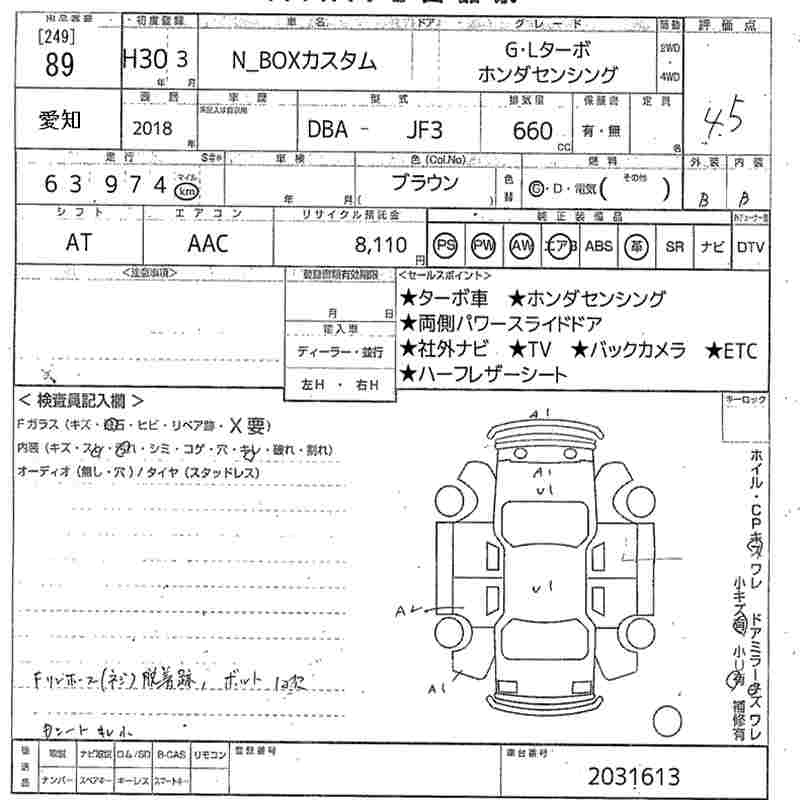 初度登録 車名 ドア グレード 駆動 評価点
[249]
89 H30 3 N_BOXカスタム G・Lターボ ホンダセンシング 2WD ・ 4WD
年 月
車歴 型式 排気量 保証書 定員
愛知 2018 年 DBA - JF3 660 CC 有・無 名 4.5
走行 車検 色(Col.No) 燃料 外装 内装
63974 マイル km 年 月 ブラウン ( ) 色替 G・D・電気( その他 ) B B
シフト エアコン リサイクル預託金 純正装備品
AT AAC 8,110円 PS PW AW エアB ABS 革 SR ナビ DTV
<注意事項> 登録書類有効期限 <セールスポイント>
月 日
★ターボ車 ★ホンダセンシング
輸入車
★両側パワースライドドア
ディーラー・並行
★社外ナビ ★TV ★バックカメラ ★ETC
左H ・ 右H
★ハーフレザーシート
<検査員記入欄> キーロック
Fガラス(キズ・飛石・ヒビ・リペア跡・X要)
内装(キズ・スレ・汚れ・シミ・コゲ・穴・キレ・破れ・割れ)
オーディオ(無し・穴)/タイヤ(スタッドレス)
A1
A1
U1
U1
A1
ホイル・CPキズワレ ドアミラーキズワレ
小キズ有 小U有 補修有
脱着跡, ボルト
シート キレ小
後送品 取説 ナビ取説 ロム/SD B-CAS リモコン 登録番号 車台番号
ナンバー スペアキー キーレス スマートキー 2031613